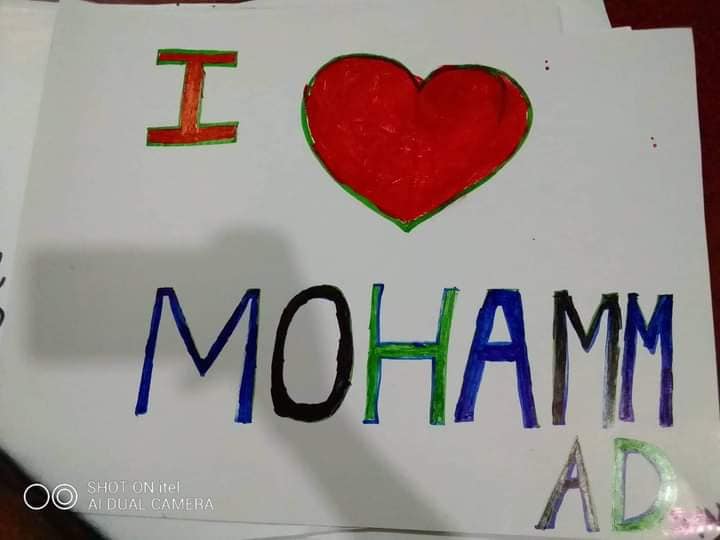 I
MOHAMM
AD
SHOT ON itel
AI DUAL CAMERA